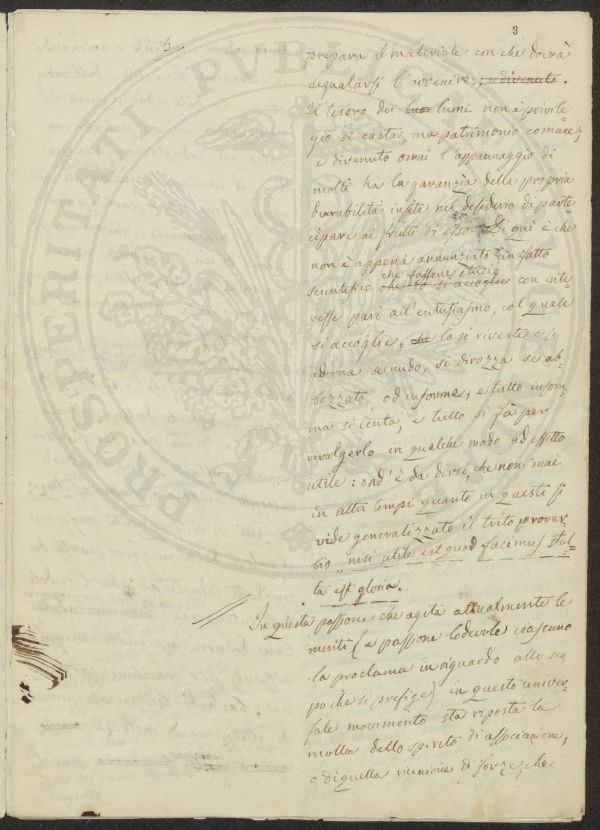 3
prepara il materiale con che dovrà
segnalarsi l'avvenire; e divenuto.
Il tesoro dei lumi non è privile-
gio di casta, ma patrimonio comune;
e divenuto omai l'appannaggio di
molti ha la garanzia della propria
durabilità insita nel desiderio di parte
cipare ai frutti di esso. Di qui è che
non è appena annunziato un fatto
che fassene studio
scientifico che lo si accoglie con inte-
resse pari all'entusiasmo, col quale
si accoglie, che lo si riveste e si
adorna se nudo, si dirozza se ab-
bozzato od informe, e tutto insom-
ma si tenta, e tutto si fà per
rivolgerlo in qualche modo ad effetto
utile: ond'è da dirsi, che non mai
in altri tempi quanto in questi si
vide generalizzato il trito prover-
bio "nisi utile est quod facimus stul-
ta est gloria.
In questa passione che agita attualmente le
menti (e passione lodevole ciascuno
la proclama in riguardo allo sco-
po che si prefige) in questo univer-
sale movimento sta riposta la
molla dello spirito di associazione,
o di quella riunione di forze, che
PROSPERITATI PVBL